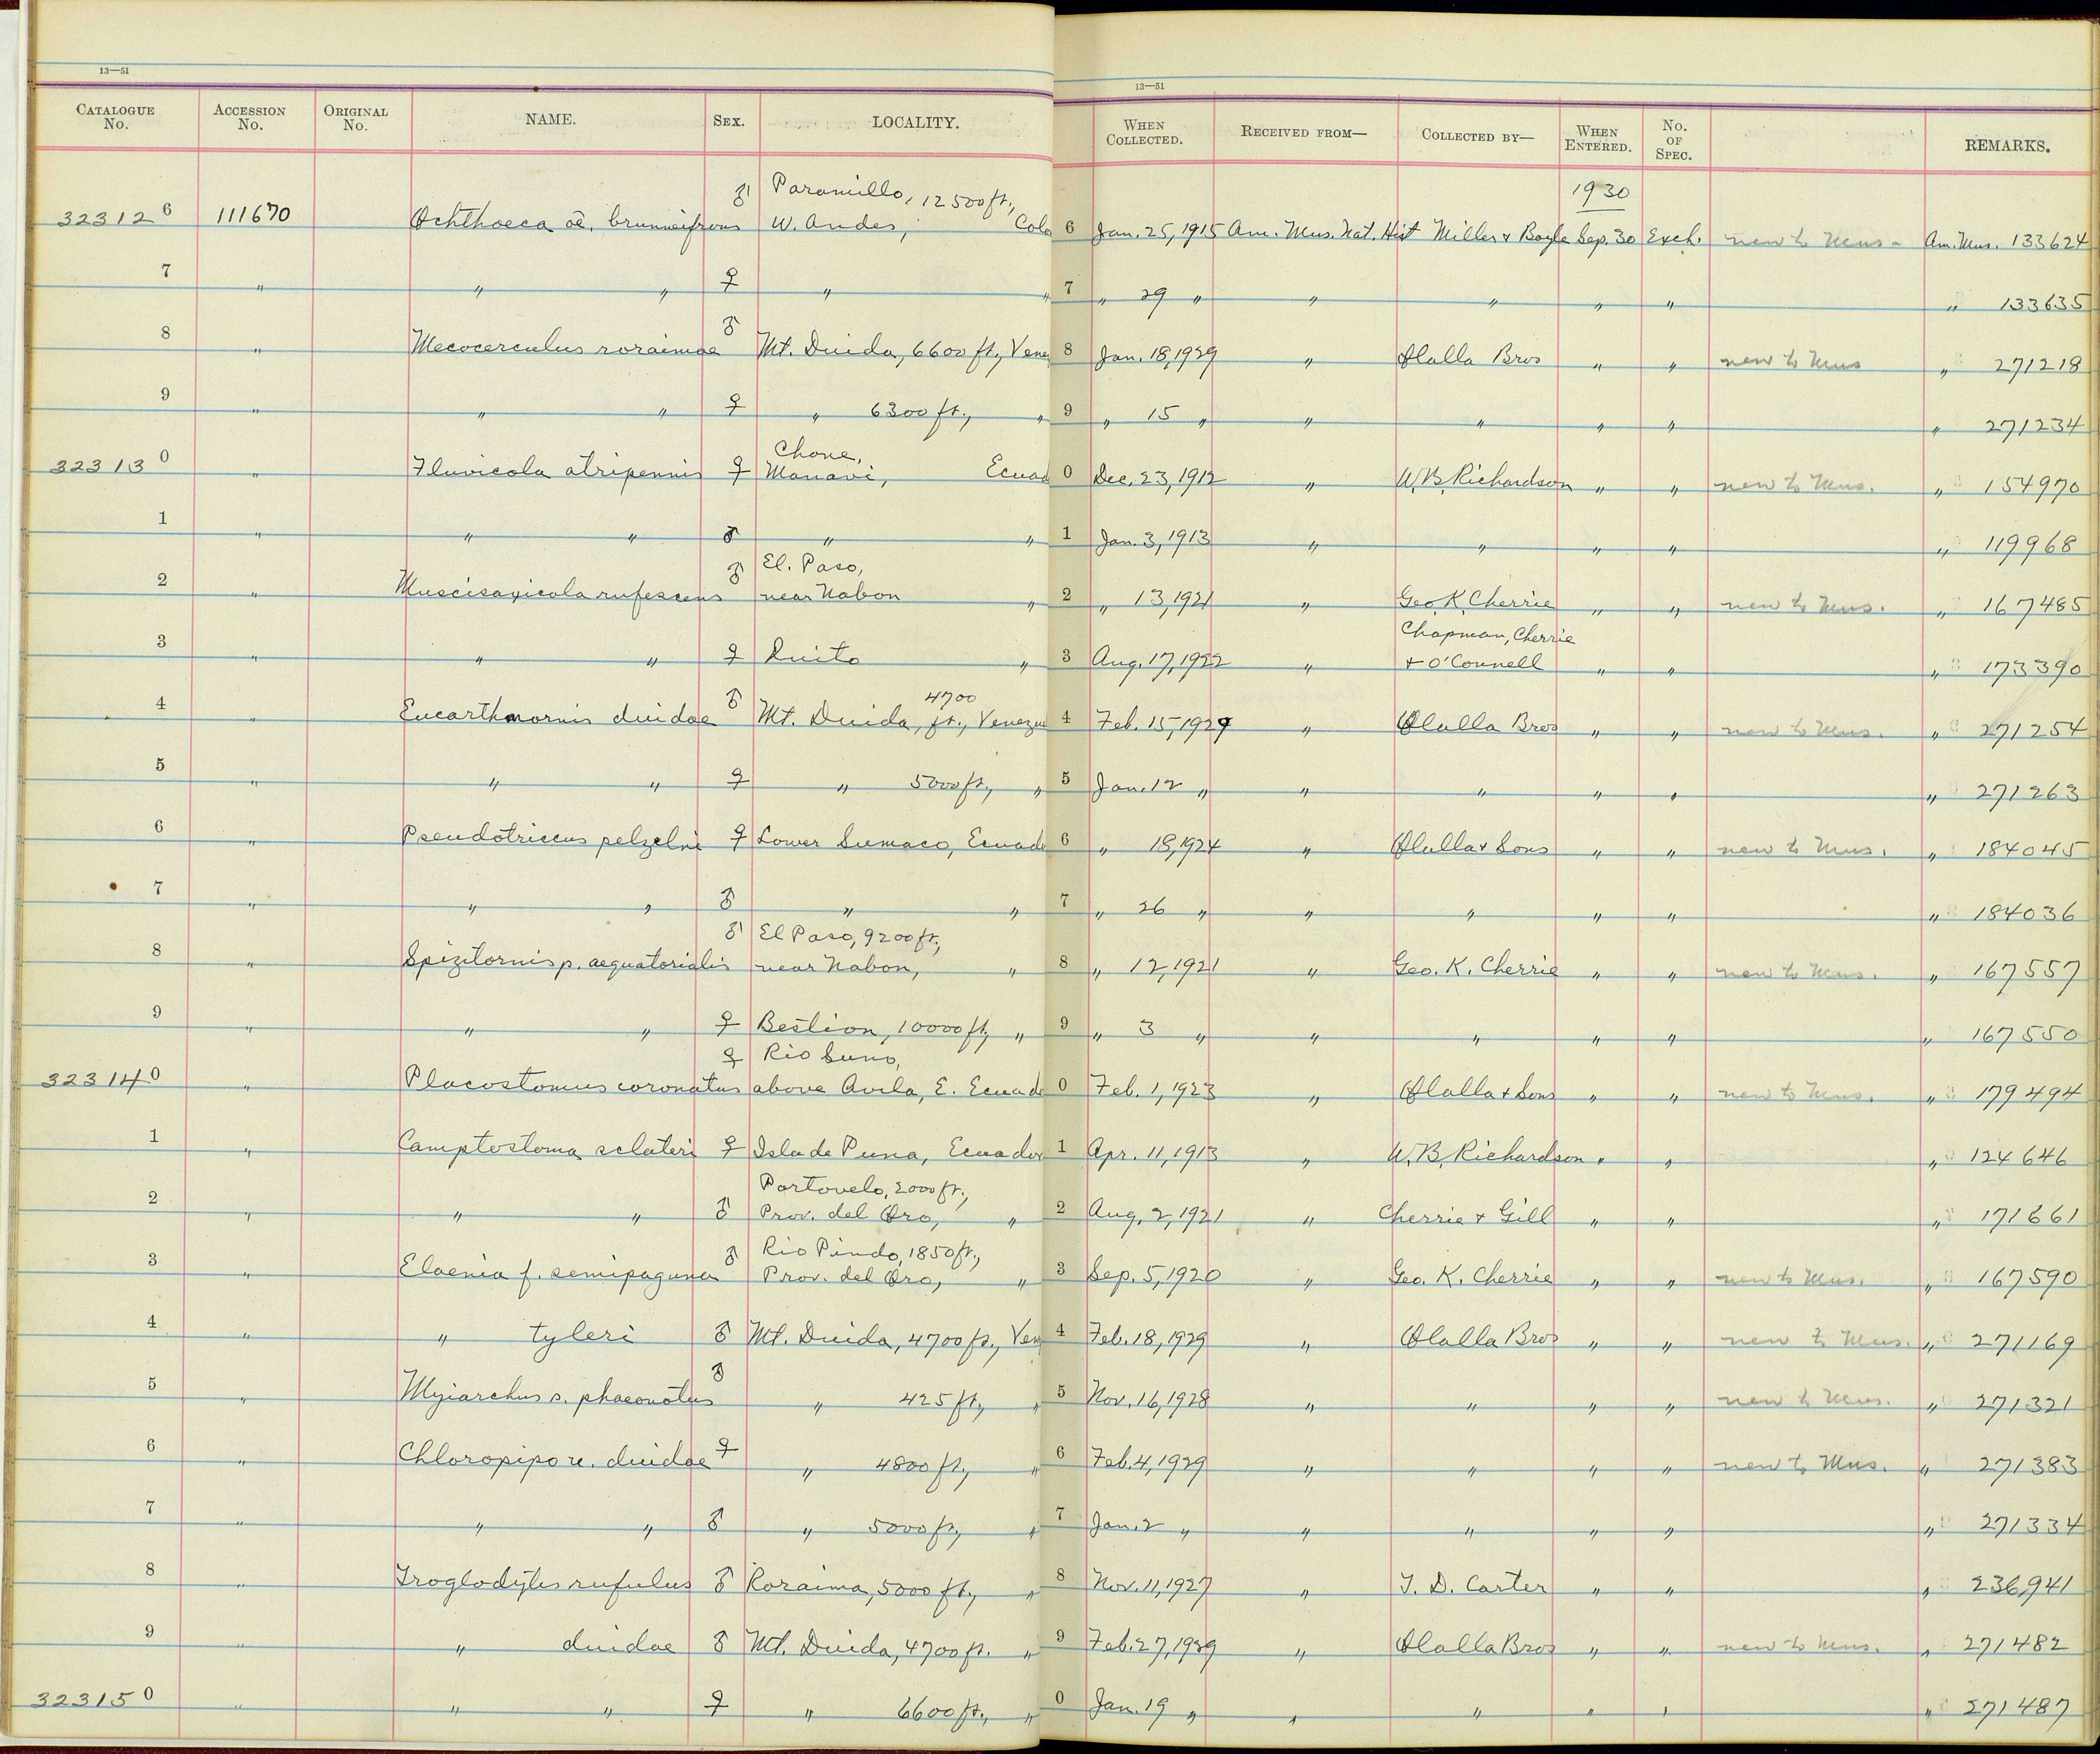 13—51
13—51
CATALOGUE No. ACCESSION No. ORIGINAL No. NAME. SEX. LOCALITY. WHEN COLLECTED. RECEIVED FROM— COLLECTED BY— WHEN ENTERED. No. OF SPEC. REMARKS.
♂ Paramillo, 12500 ft., 1930
323126 111670 Ochthoeca oe. brunneifrons W. Andes, Colo 6 Jan. 25, 1915 Am. Mus. Nat. Hist Miller & Boyle Sep. 30 Exch. new to Mus. Am. Mus. 133624
7 " " " ♀ " " 7 " 29 " " " " " " 133635
8 " Mecocerculus roraimae ♂ Mt. Duida, 6600 ft., Venez 8 Jan. 18, 1929 " Olalla Bros " " new to Mus " 271218
9 " " " ♀ " 6300 ft., " 9 " 15 " " " " " " 271234
Chone,
323130 " Fluvicola atripennis ♀ Manavi, Ecuad 0 Dec. 23, 1912 " W. B. Richardson " " new to Mus. " 154970
1 " " " ♂ " " 1 Jan. 3, 1913 " " " " " 119968
♂ El. Paso,
2 " Muscisaxicola rufescens near Nabon " 2 " 13, 1921 " Geo. K. Cherrie " " new to Mus. " 167485
Chapman, Cherrie
3 " " " ♀ Quito " 3 Aug. 17, 1922 " & O'Connell " " " 173390
4700
4 " Euscarthmornis duidae ♂ Mt. Duida, ft., Venezu 4 Feb. 15, 1929 " Olalla Bros " " new to Mus. " 271254
5 " " " ♀ " 5000 ft., " 5 Jan. 12 " " " " " " 271263
6 " Pseudotriccus pelzelni ♀ Lower Sumaco, Ecuado 6 " 18, 1924 " Olalla & Sons " " new to Mus. " 184045
7 " " " ♂ " " 7 " 26 " " " " " " 184036
♂ El Paso, 9200 ft.,
8 " Spizitornis p. aequatorialis near Nabon, " 8 " 12, 1921 " Geo. K. Cherrie " " new to Mus. " 167557
9 " " " ♀ Bestion, 10000 ft, " 9 " 3 " " " " " " 167550
♀ Rio Suno,
323140 " Placostomus coronatus above Avila, E. Ecuado 0 Feb. 1, 1923 " Olalla & Sons " " new to Mus. " 179494
1 " Camptostoma sclateri ♀ Isla de Puna, Ecuador 1 Apr. 11, 1913 " W. B. Richardson " " " 124646
Portovelo, 2000 ft.,
2 " " " ♂ Prov. del Oro, " 2 Aug. 2, 1921 " Cherrie & Gill " " " 171661
♂ Rio Pindo, 1850 ft.,
3 " Elaenia f. semipagana Prov. del Oro, " 3 Sep. 5, 1920 " Geo. K. Cherrie " " new to Mus. " 167590
4 " " tyleri ♂ Mt. Duida, 4700 ft., Ven 4 Feb. 18, 1929 " Olalla Bros " " new to Mus. " 271169
5 " Myiarchus s. phaeonotus ♂ " 425 ft., " 5 Nov. 16, 1928 " " " " new to Mus. " 271321
6 " Chloropipo u. duidae ♀ " 4800 ft., " 6 Feb. 4, 1929 " " " " new to Mus. " 271383
7 " " " ♂ " 5000 ft, " 7 Jan. 2 " " " " " " 271334
8 " Troglodytes rufulus ♂ Roraima, 5000 ft., " 8 Nov. 11, 1927 " T. D. Carter " " " 236941
9 " " duidae ♂ Mt. Duida, 4700 ft. " 9 Feb. 27, 1929 " Olalla Bros " " new to Mus. " 271482
323150 " " " ♀ " 6600 ft., " 0 Jan. 19 " " " " " " 271487